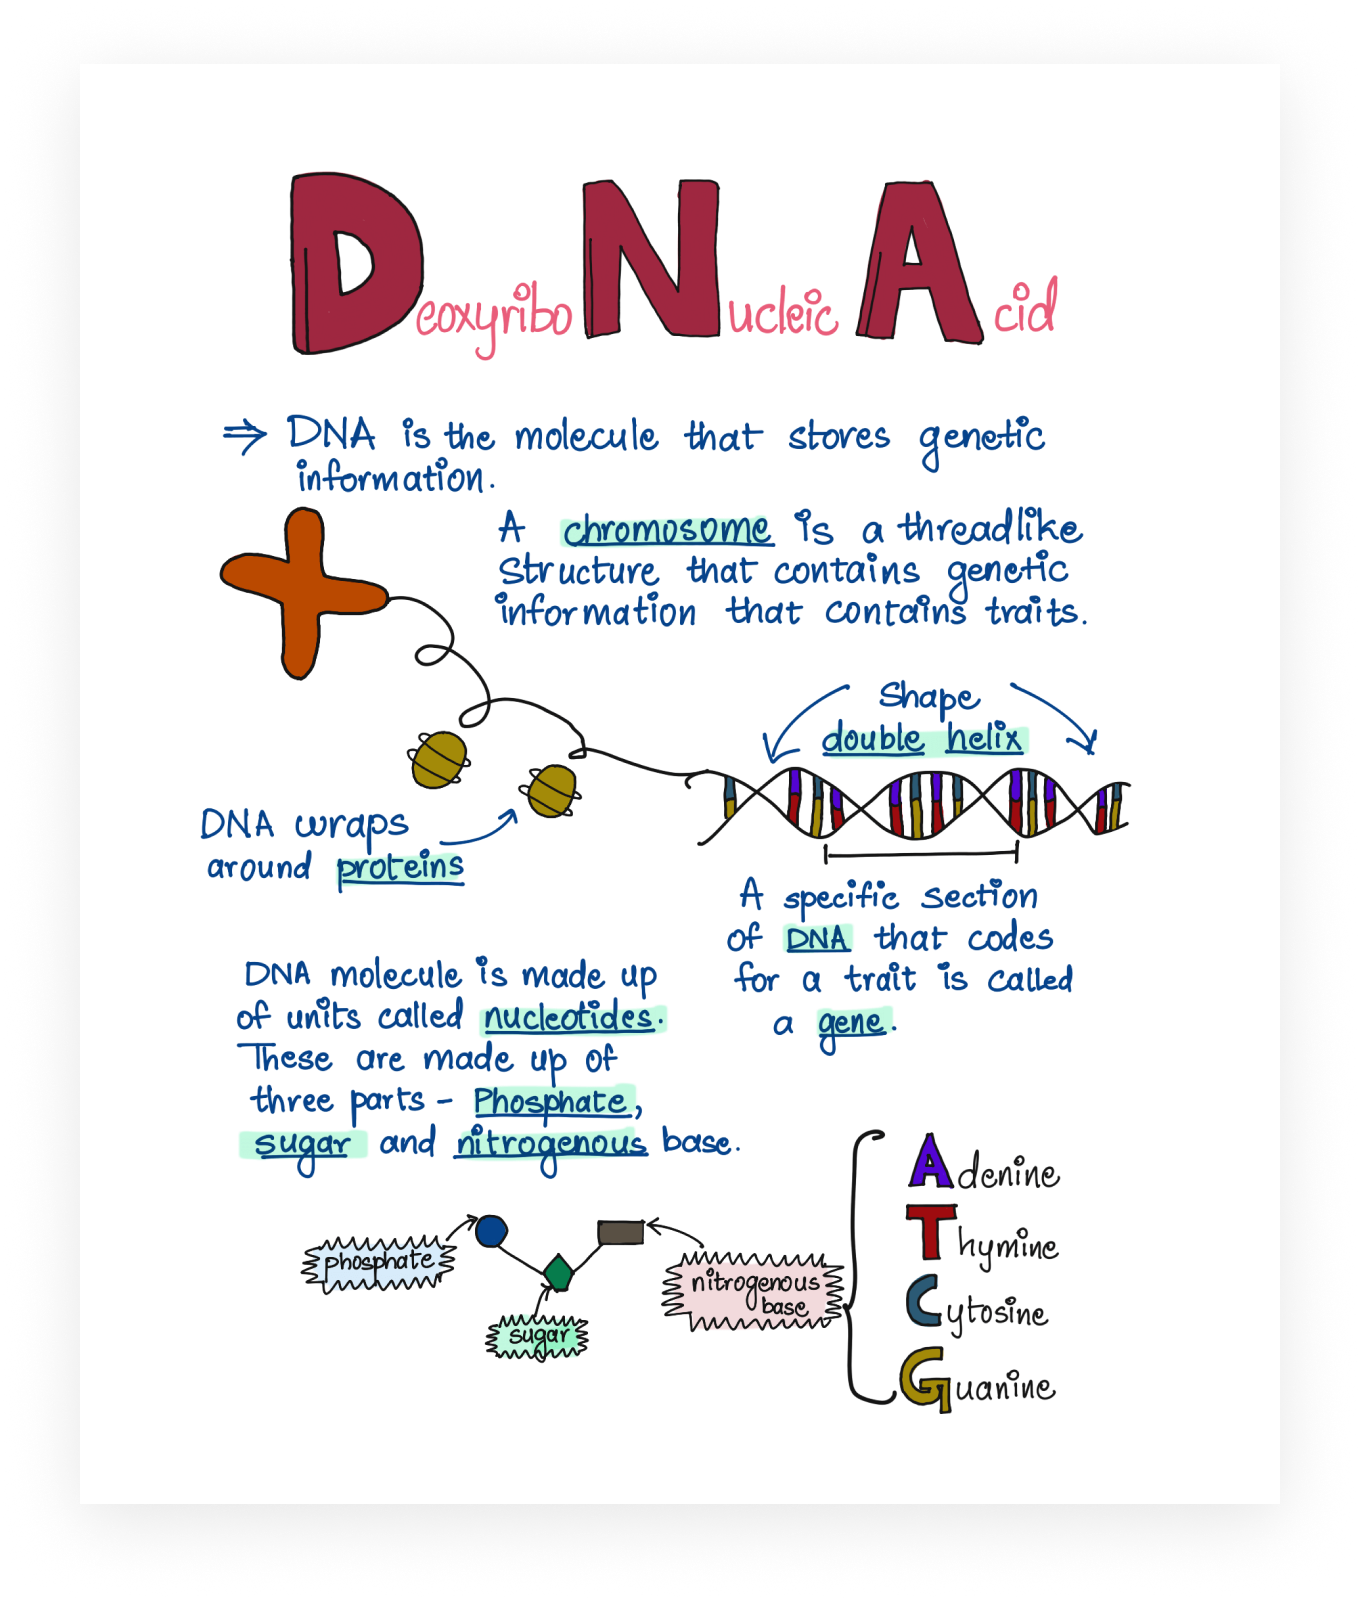 DeoxyriboNucleic Acid
⇒ DNA is the molecule that stores genetic
information.
A chromosome is a threadlike
structure that contains genetic
information that contains traits.
Shape
double helix
DNA wraps
around proteins
A specific section
of DNA that codes
for a trait is called
a gene.
DNA molecule is made up
of units called nucleotides.
These are made up of
three parts - Phosphate,
sugar and nitrogenous base.
phosphate
sugar
nitrogenous
base
Adenine
Thymine
Cytosine
Guanine